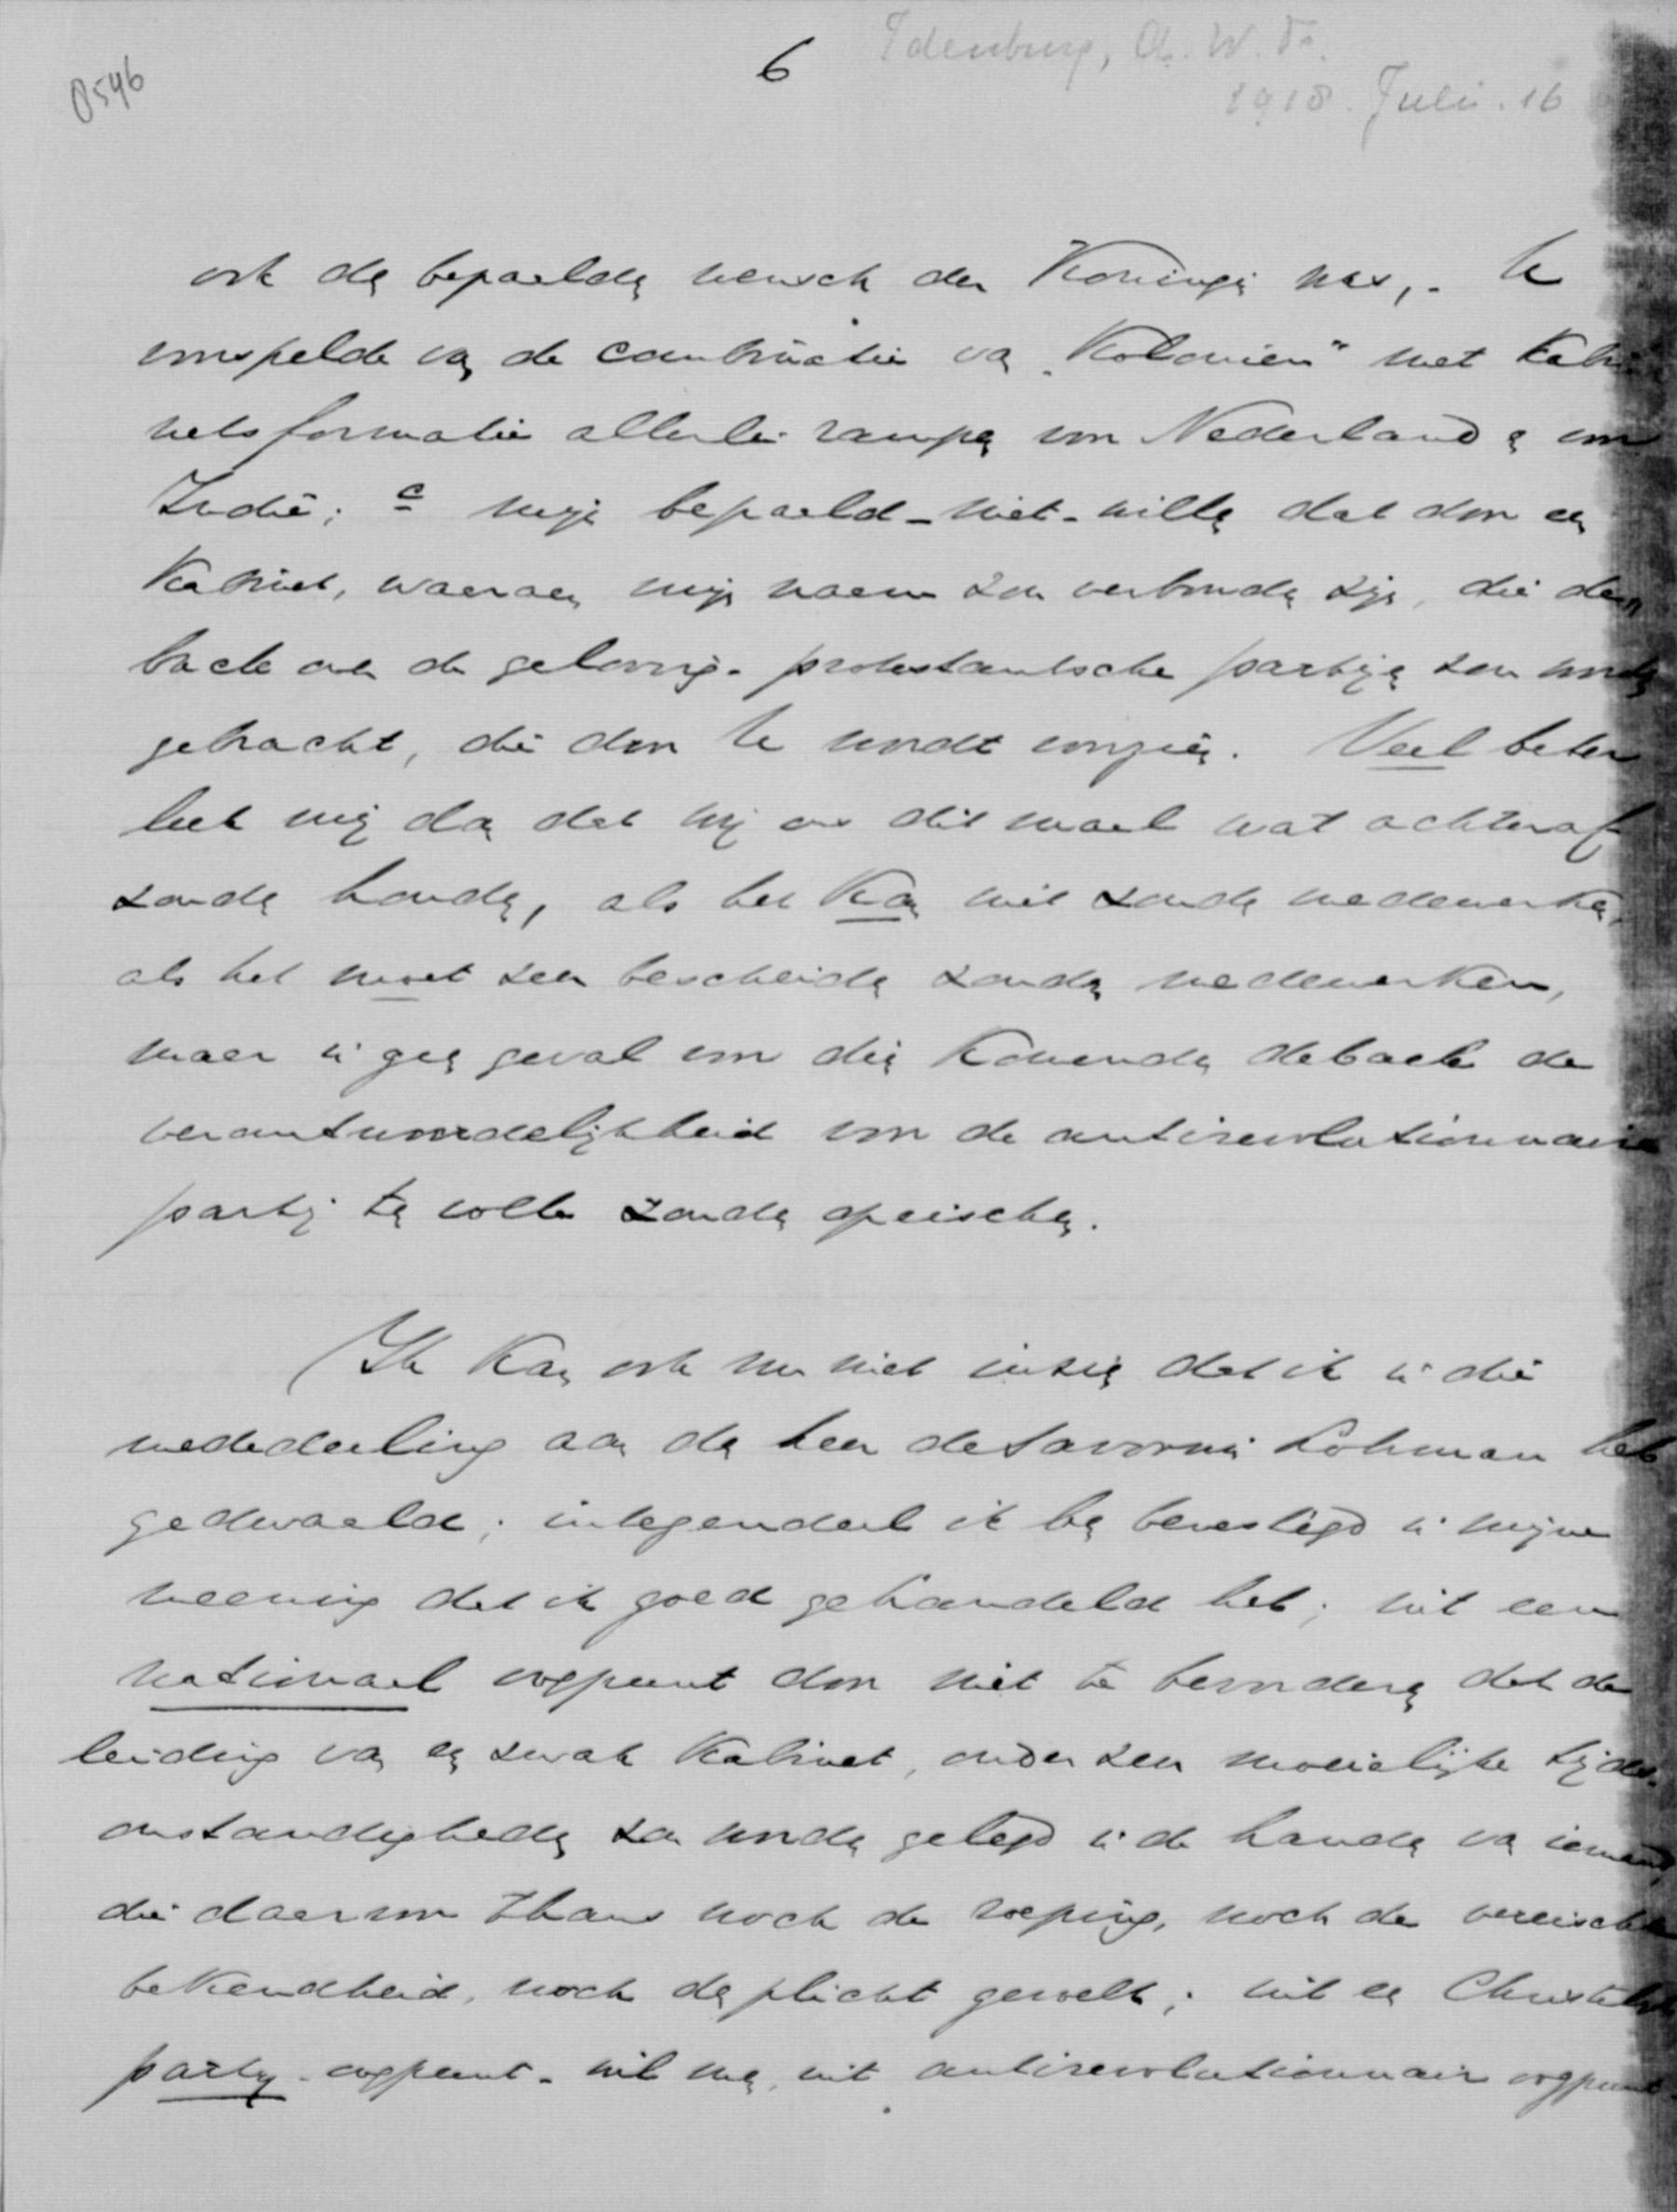 0546
6
Idenburg, A. W. F.
1918. Juli. 16
ook de bepaalde wensch der Koningin was,. U
voorspelde van de combinatie van "Koloniën" met Kabi-
netsformatie allerlei rampen voor Nederland en voor
Indië; en mijn bepaald-niet-willen dat door een
Kabinet, waaraan mijn naam zou verbonden zijn, die de-
bacle over de geloovig-protestantsche partijen zou worden
gebracht, die door U wordt voorzien. Veel beter
leek mij dan dat wij ons ditmaal wat achteraf
zouden houden, als het kan niet zouden medewerken,
als het moet zeer bescheiden zouden medewerken,
maar in geen geval voor die komende debacle de
verantwoordelijkheid voor de antirevolutionnaire
partij ten volle zouden opeischen.
Ik kan ook nu niet inzien dat ik in die
mededeeling aan de heer de Savornin Lohman heb
gedwaald; integendeel ik ben bevestigd in mijne
meening dat ik goed gehandeld heb; uit een
nationaal oogpunt door niet te bevorderen dat de
leiding van een zwak Kabinet, onder zeer moeielijke tijds-
omstandigheden zou worden gelegd in de handen van iemand,
die daarvoor thans noch de roeping, noch de vereischte
bekendheid, noch de plicht gevoelt; uit een Christelijk
party-oogpunt-wil men, uit antirevolutionnair oogpunt-